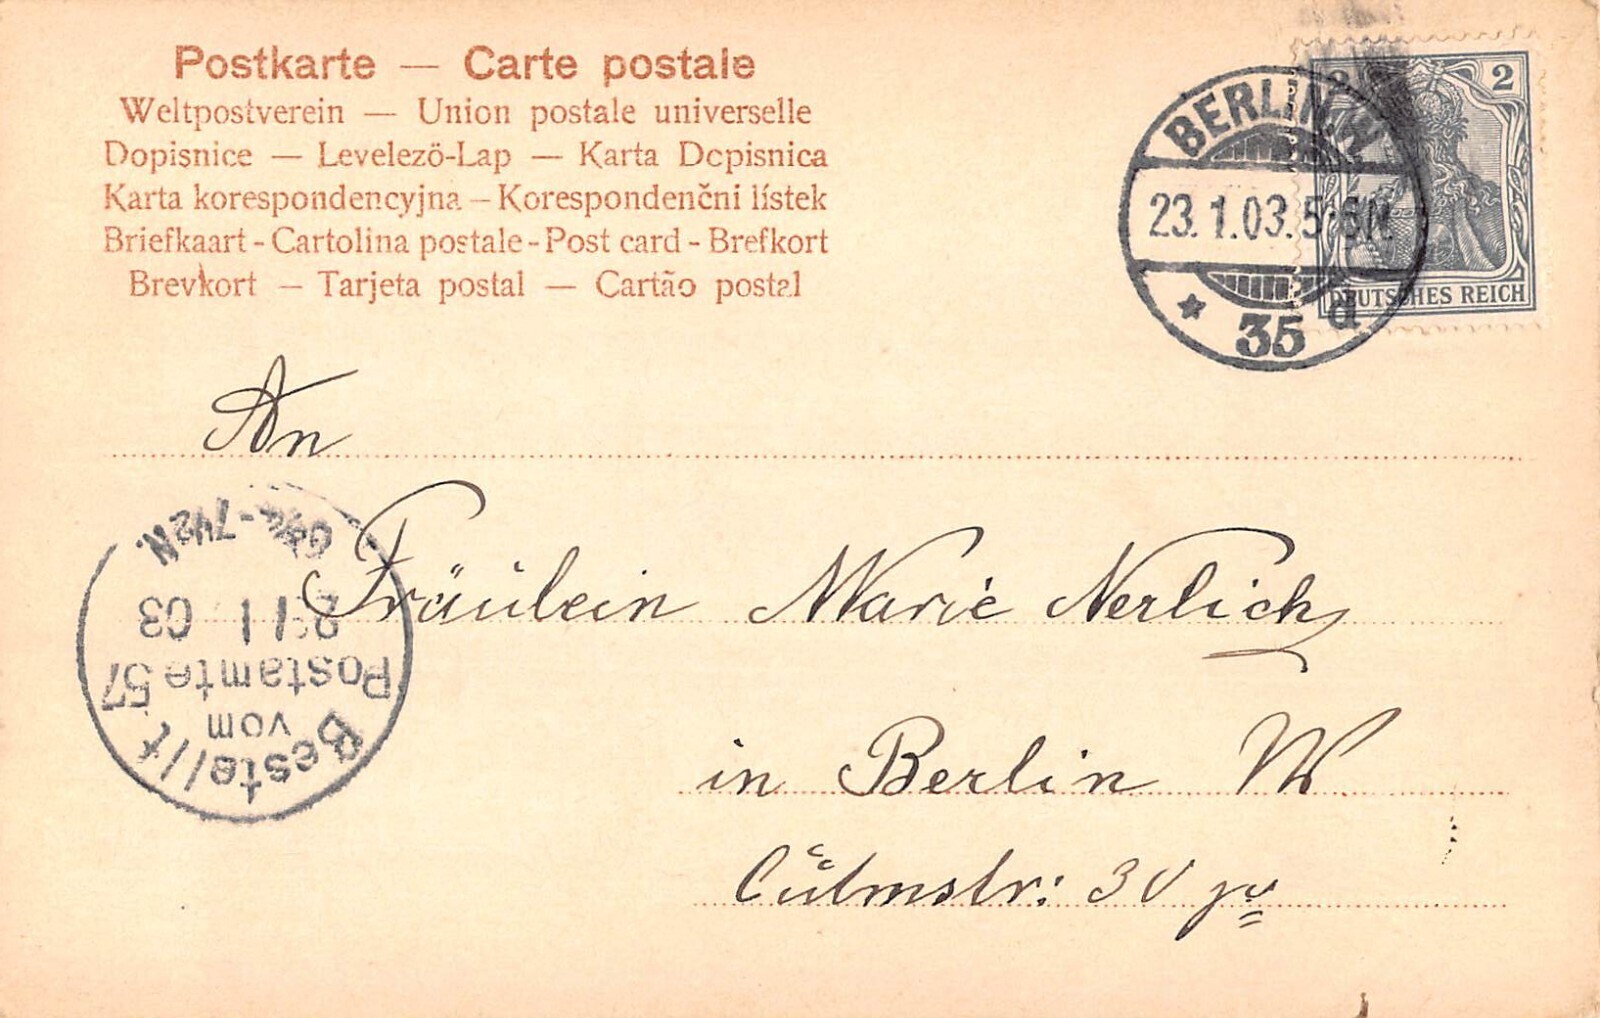 Postkarte — Carte postale
Weltpostverein — Union postale universelle
Dopisnice — Levelező-Lap — Karta Dopisnica
Karta korespondencyjna – Korespondenčni lístek
Briefkaart - Cartolina postale - Post card - Brefkort
Brevkort — Tarjeta postal — Cartão postal
2
DEUTSCHES REICH
BERLIN, W
23. 1. 03. 5-6N.
* 35 d
An
Fräulein Marie Nerlich
in Berlin W
Cŭlmstr: 30
Bestellt
vom
Postamte 57
1 03
-7½N.